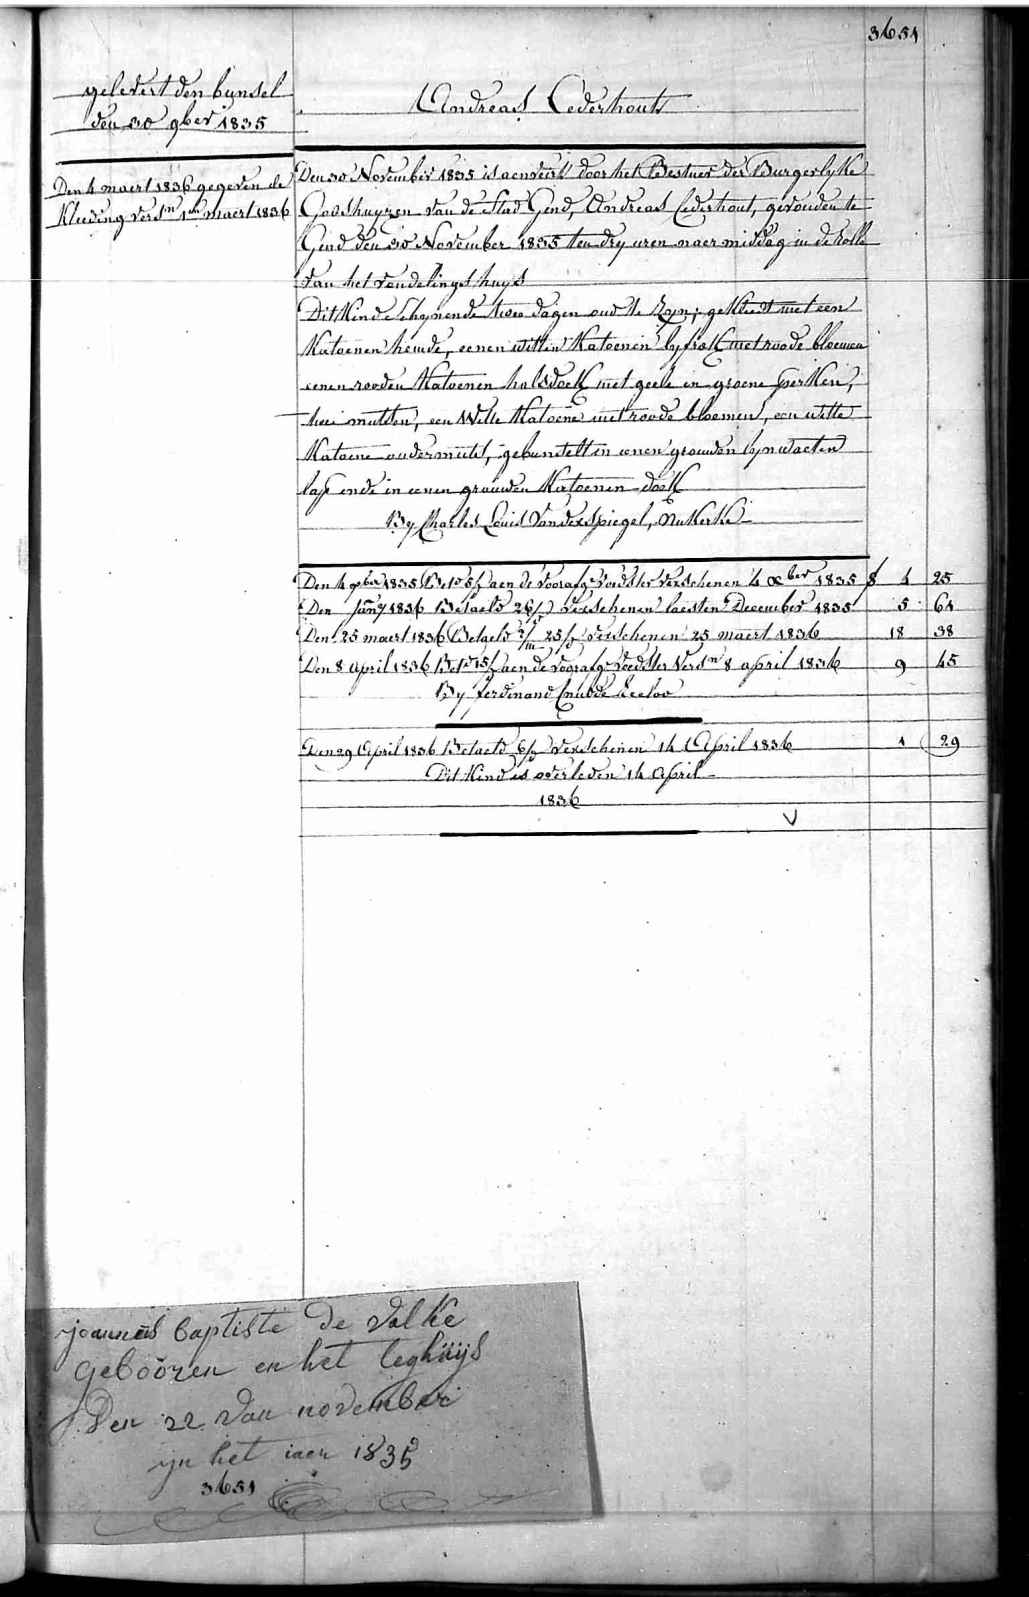 3651
gelevert den bunsel
den 30 9ber 1835
Andreas Cederhout
Den 4 maert 1836 gegeven de
Kleeding versn 1en maert 1836
Den 30 November 1835 is aenveirt door het Bestuer der Burgerlyke
Godshuyzen van de Stad Gend, Andreas Cederhout, gevonden te
Gend den 30 November 1835 ten dry uren naer middag in de rolle
van het vondelingshuys
Dit Kind schynende twee dagen oud te zyn; gekleedt met een
Katoenen hemde, eenen witten Katoenen lyfrok met roode bloemen
eenen rooden Katoenen halsdoek met geele en groene perken,
twee mutsen, een witte Katoene met roode bloemen, een witte
Katoene ondermuts, gebunselt in eenen grouwen lynwaeten
lap ende in eenen grauwen Katoenen doek
By Charles Louis Vanderspiegel, Nukerke
Den 4 1835 aen de voorafge voedster verschenen 4 Xber 1835 f 4 25
Den Jany 1836 Betaeld 26/ verschenen laesten December 1835 5 61
Den 25 maert 1836 Betaeld 25/ verschenen 25 maert 1836 18 38
Den 8 April 1836 15/ aen de voorafge voedster versn 8 april 1836 9 45
By ferdinand Eecloo
Den 29 April 1836 Betaeld 6/ verschenen 14 April 1836 1 29
Dit Kind is overleden 14 April
1836
joannes baptiste de valke
gebooren en het leghuijs
Den 22 van november
yn het iaer 1835
3651